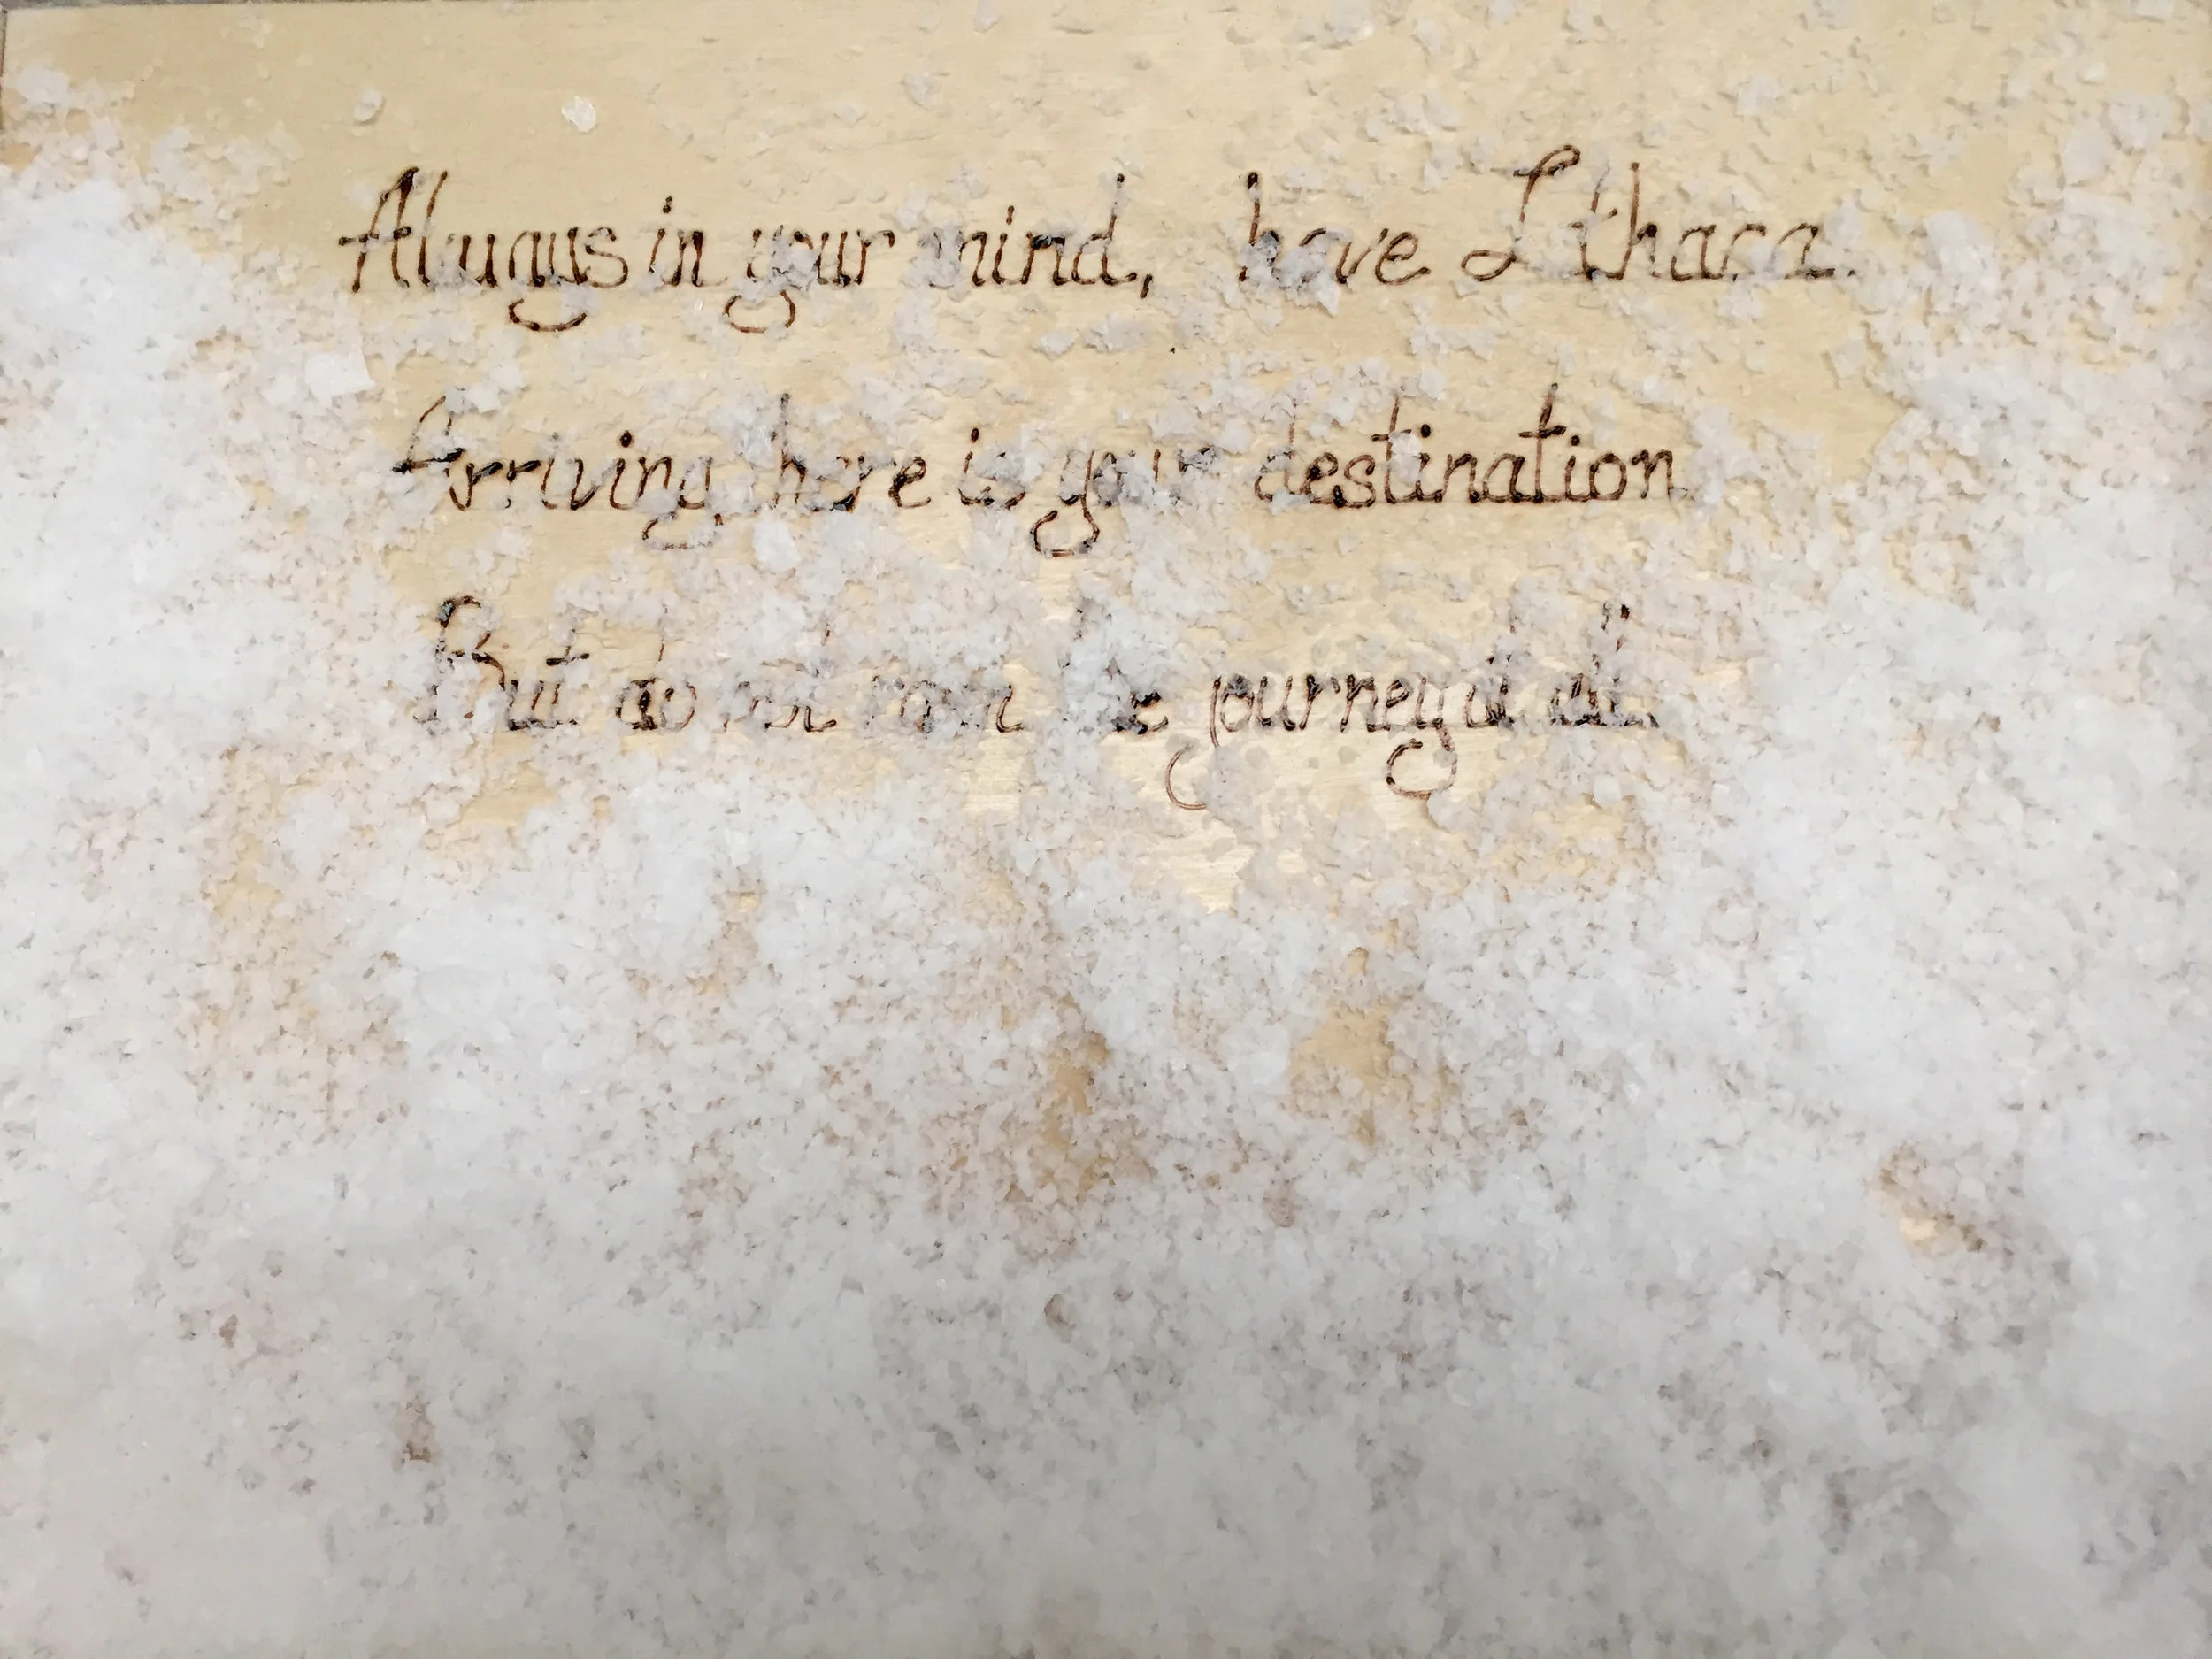 Always in your mind, have Ithaca.
Arriving there is your destination
But do not rush the journey at all.